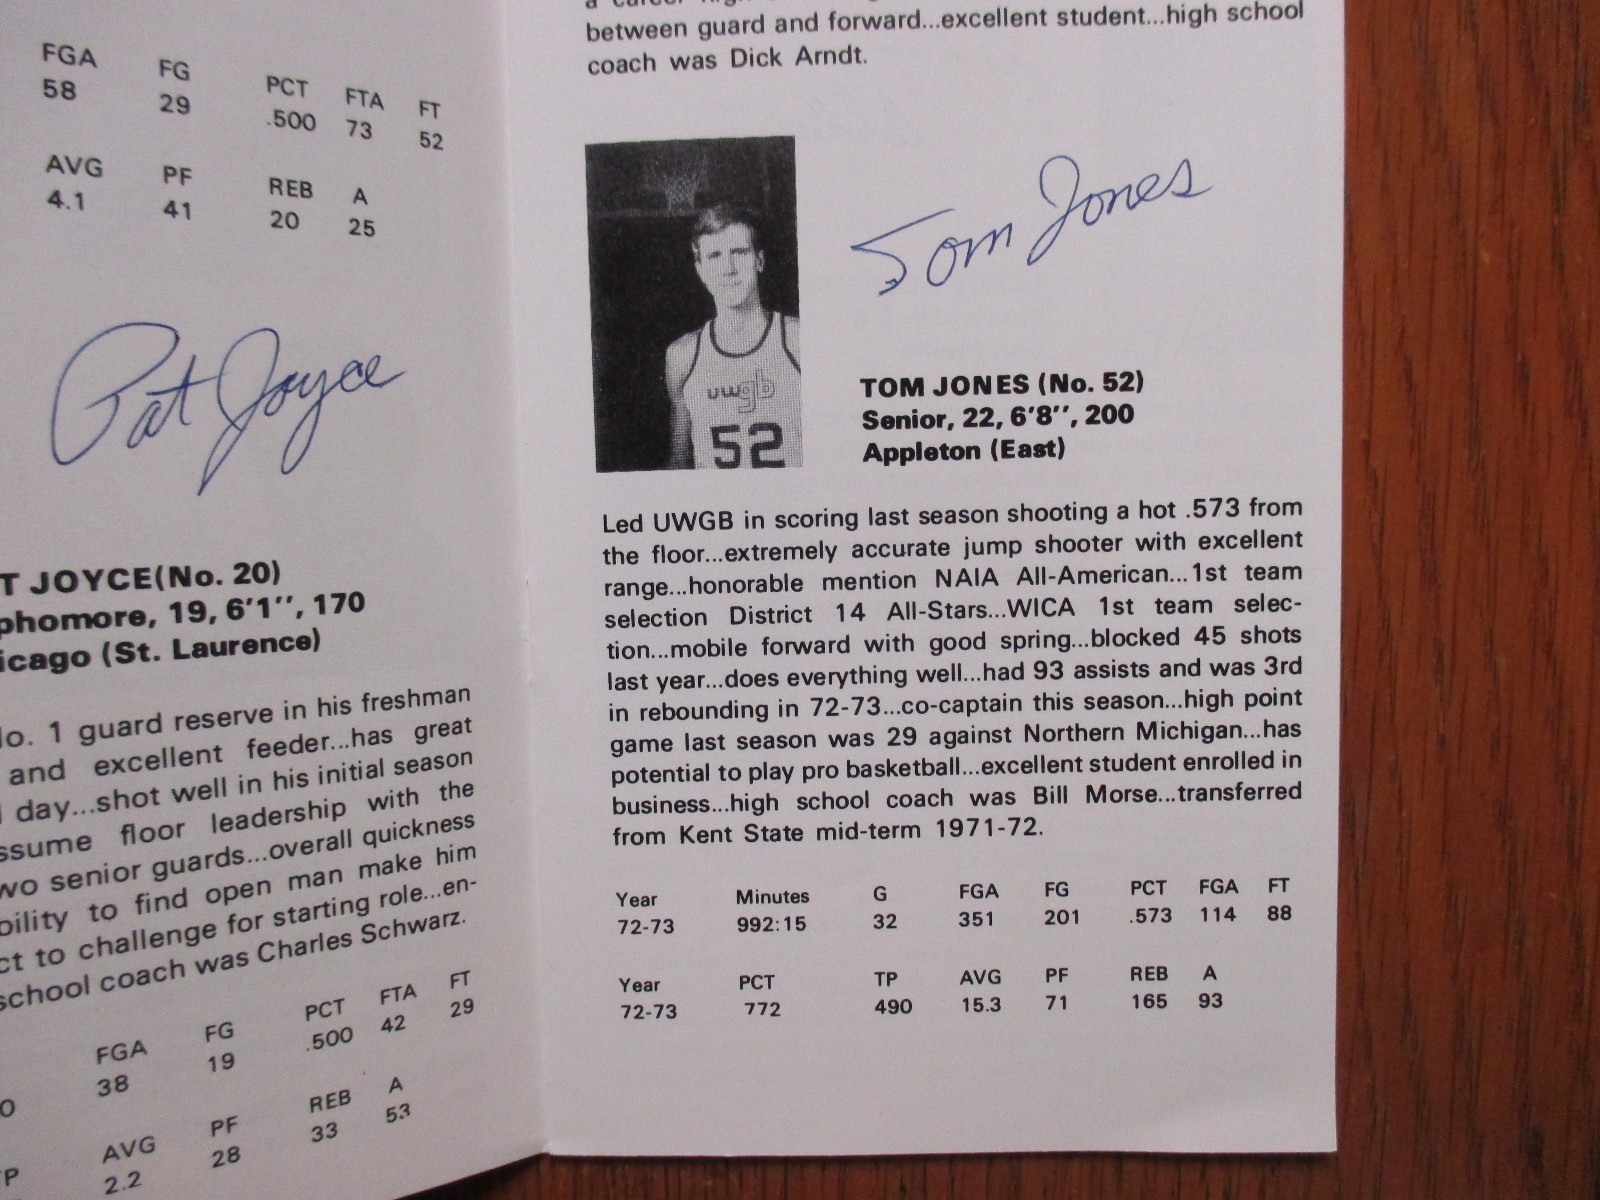 FGA FG PCT FTA FT
58 29 .500 73 52
AVG PF REB A
4.1 41 20 25
Pat Joyce
T JOYCE(No. 20)
phomore, 19, 6'1'', 170
icago (St. Laurence)
o. 1 guard reserve in his freshman
and excellent feeder...has great
day...shot well in his initial season
ssume floor leadership with the
wo senior guards...overall quickness
bility to find open man make him
ct to challenge for starting role...en-
school coach was Charles Schwarz.
FGA FG PCT FTA FT
38 19 .500 42 29
AVG PF REB A
2.2 28 33 53
between guard and forward...excellent student...high school
coach was Dick Arndt.
uwgb
52
Tom Jones
TOM JONES (No. 52)
Senior, 22, 6'8'', 200
Appleton (East)
Led UWGB in scoring last season shooting a hot .573 from
the floor...extremely accurate jump shooter with excellent
range...honorable mention NAIA All-American...1st team
selection District 14 All-Stars...WICA 1st team selec-
tion...mobile forward with good spring...blocked 45 shots
last year...does everything well...had 93 assists and was 3rd
in rebounding in 72-73...co-captain this season...high point
game last season was 29 against Northern Michigan...has
potential to play pro basketball...excellent student enrolled in
business...high school coach was Bill Morse...transferred
from Kent State mid-term 1971-72.
Year Minutes G FGA FG PCT FGA FT
72-73 992:15 32 351 201 .573 114 88
Year PCT TP AVG PF REB A
72-73 772 490 15.3 71 165 93